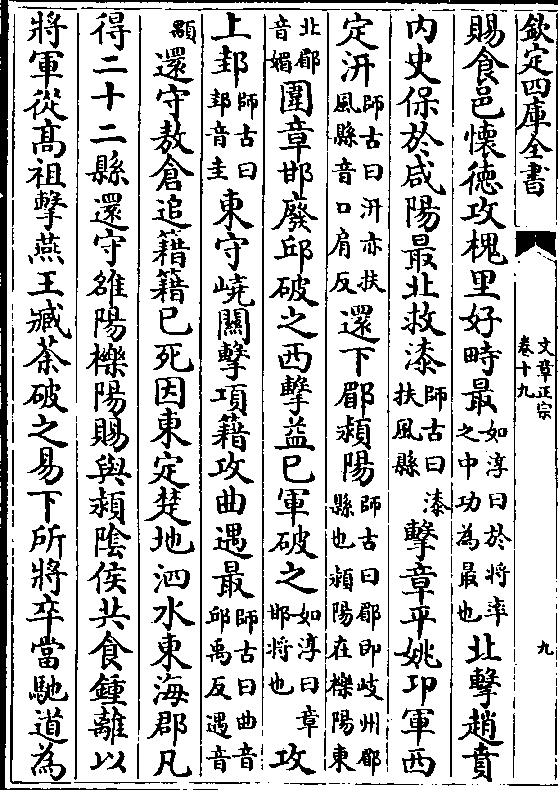 欽定四庫全書
文章正宗
卷十九
九
賜食邑懷德攻槐里好畤最如淳曰於將率之中功為最也北擊趙賁
内史保於咸陽最北救漆師古曰漆扶風縣擊章平姚卬軍西
定汧師古曰汧亦扶風縣音口肩反還下郿頻陽師古曰郿即岐州郿縣也頻陽在櫟陽東
北郿音媚圍章邯廢邱破之西擊益已軍破之如淳曰章邯將也攻
上邽師古曰邽音圭東守嶢關擊項籍攻曲遇最師古曰曲音邱禹反遇音
顒還守敖倉追籍籍已死因東定楚地泗水東海郡凡
得二十二縣還守雒陽櫟陽賜與潁隂侯共食鍾離以
將軍從髙祖擊燕王臧荼破之易下所將卒當馳道為